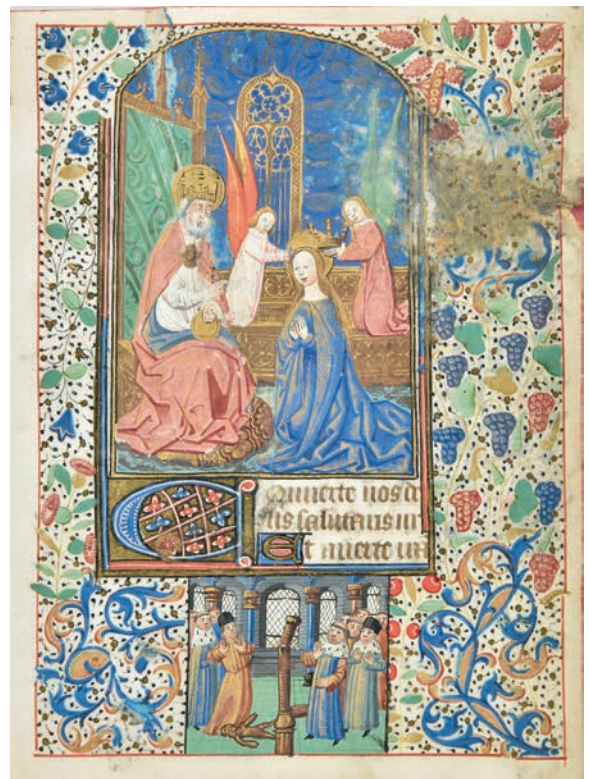 Conuerte nos d
us salutaris nr
Et auerte ira